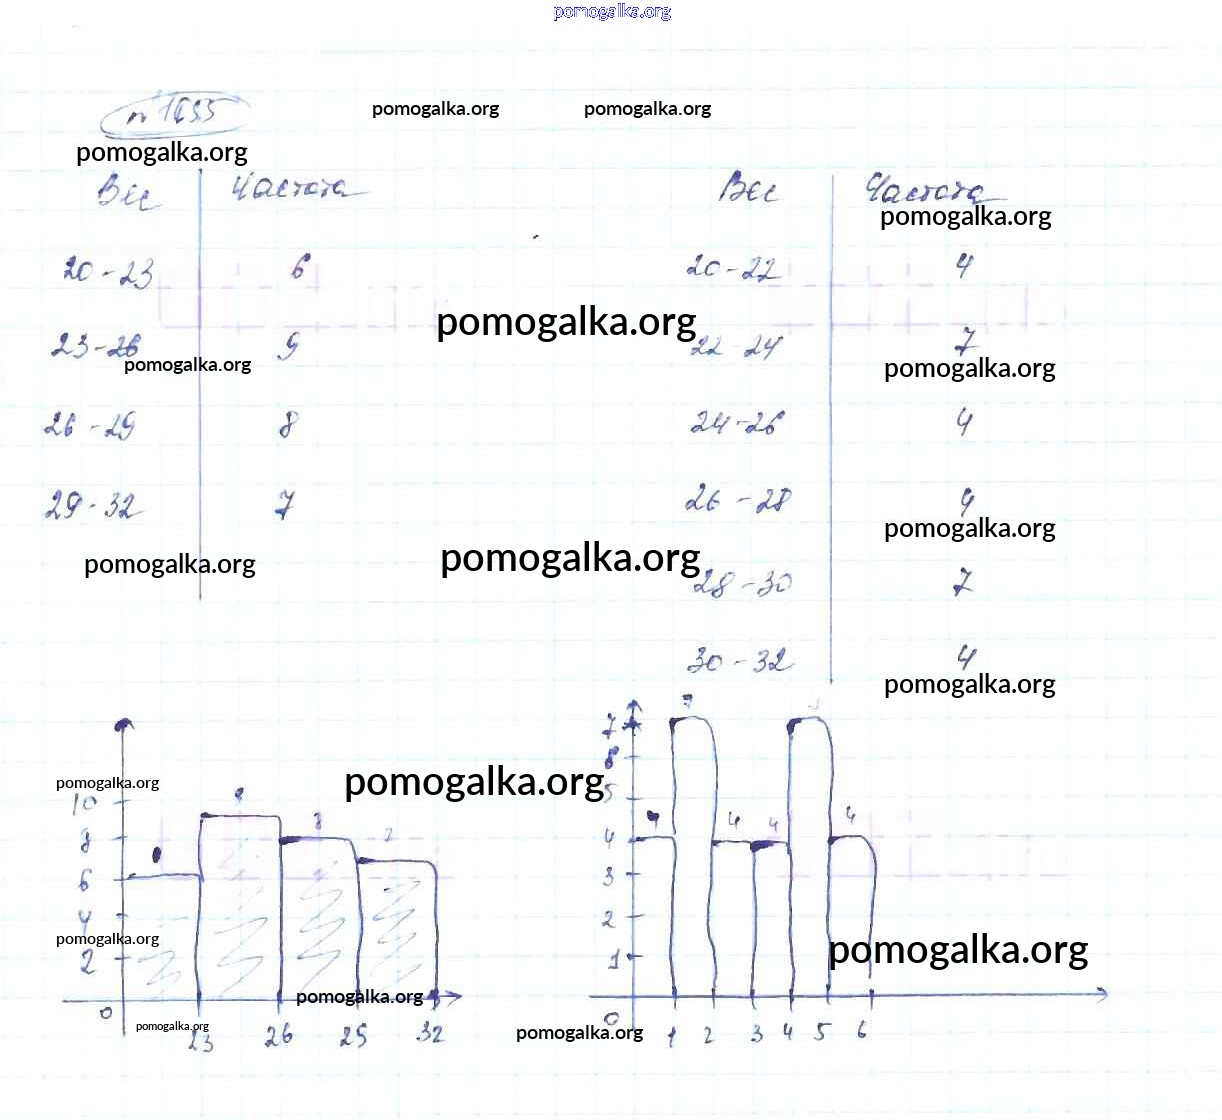 pomogalka.org
№ 1655 pomogalka.org pomogalka.org
pomogalka.org
Вес Частота Вес Частота
pomogalka.org
20-23 6 20-22 4
pomogalka.org
23-26 9 22-24 7
pomogalka.org pomogalka.org
26-29 8 24-26 4
29-32 7 26-28 4
pomogalka.org
pomogalka.org pomogalka.org
28-30 7
30-32 4
pomogalka.org
7
pomogalka.org pomogalka.org
10 8 5
8 4 4 4 4
6 3
4 2
pomogalka.org pomogalka.org
2 1
pomogalka.org
0 0
pomogalka.org pomogalka.org
23 26 29 32 1 2 3 4 5 6